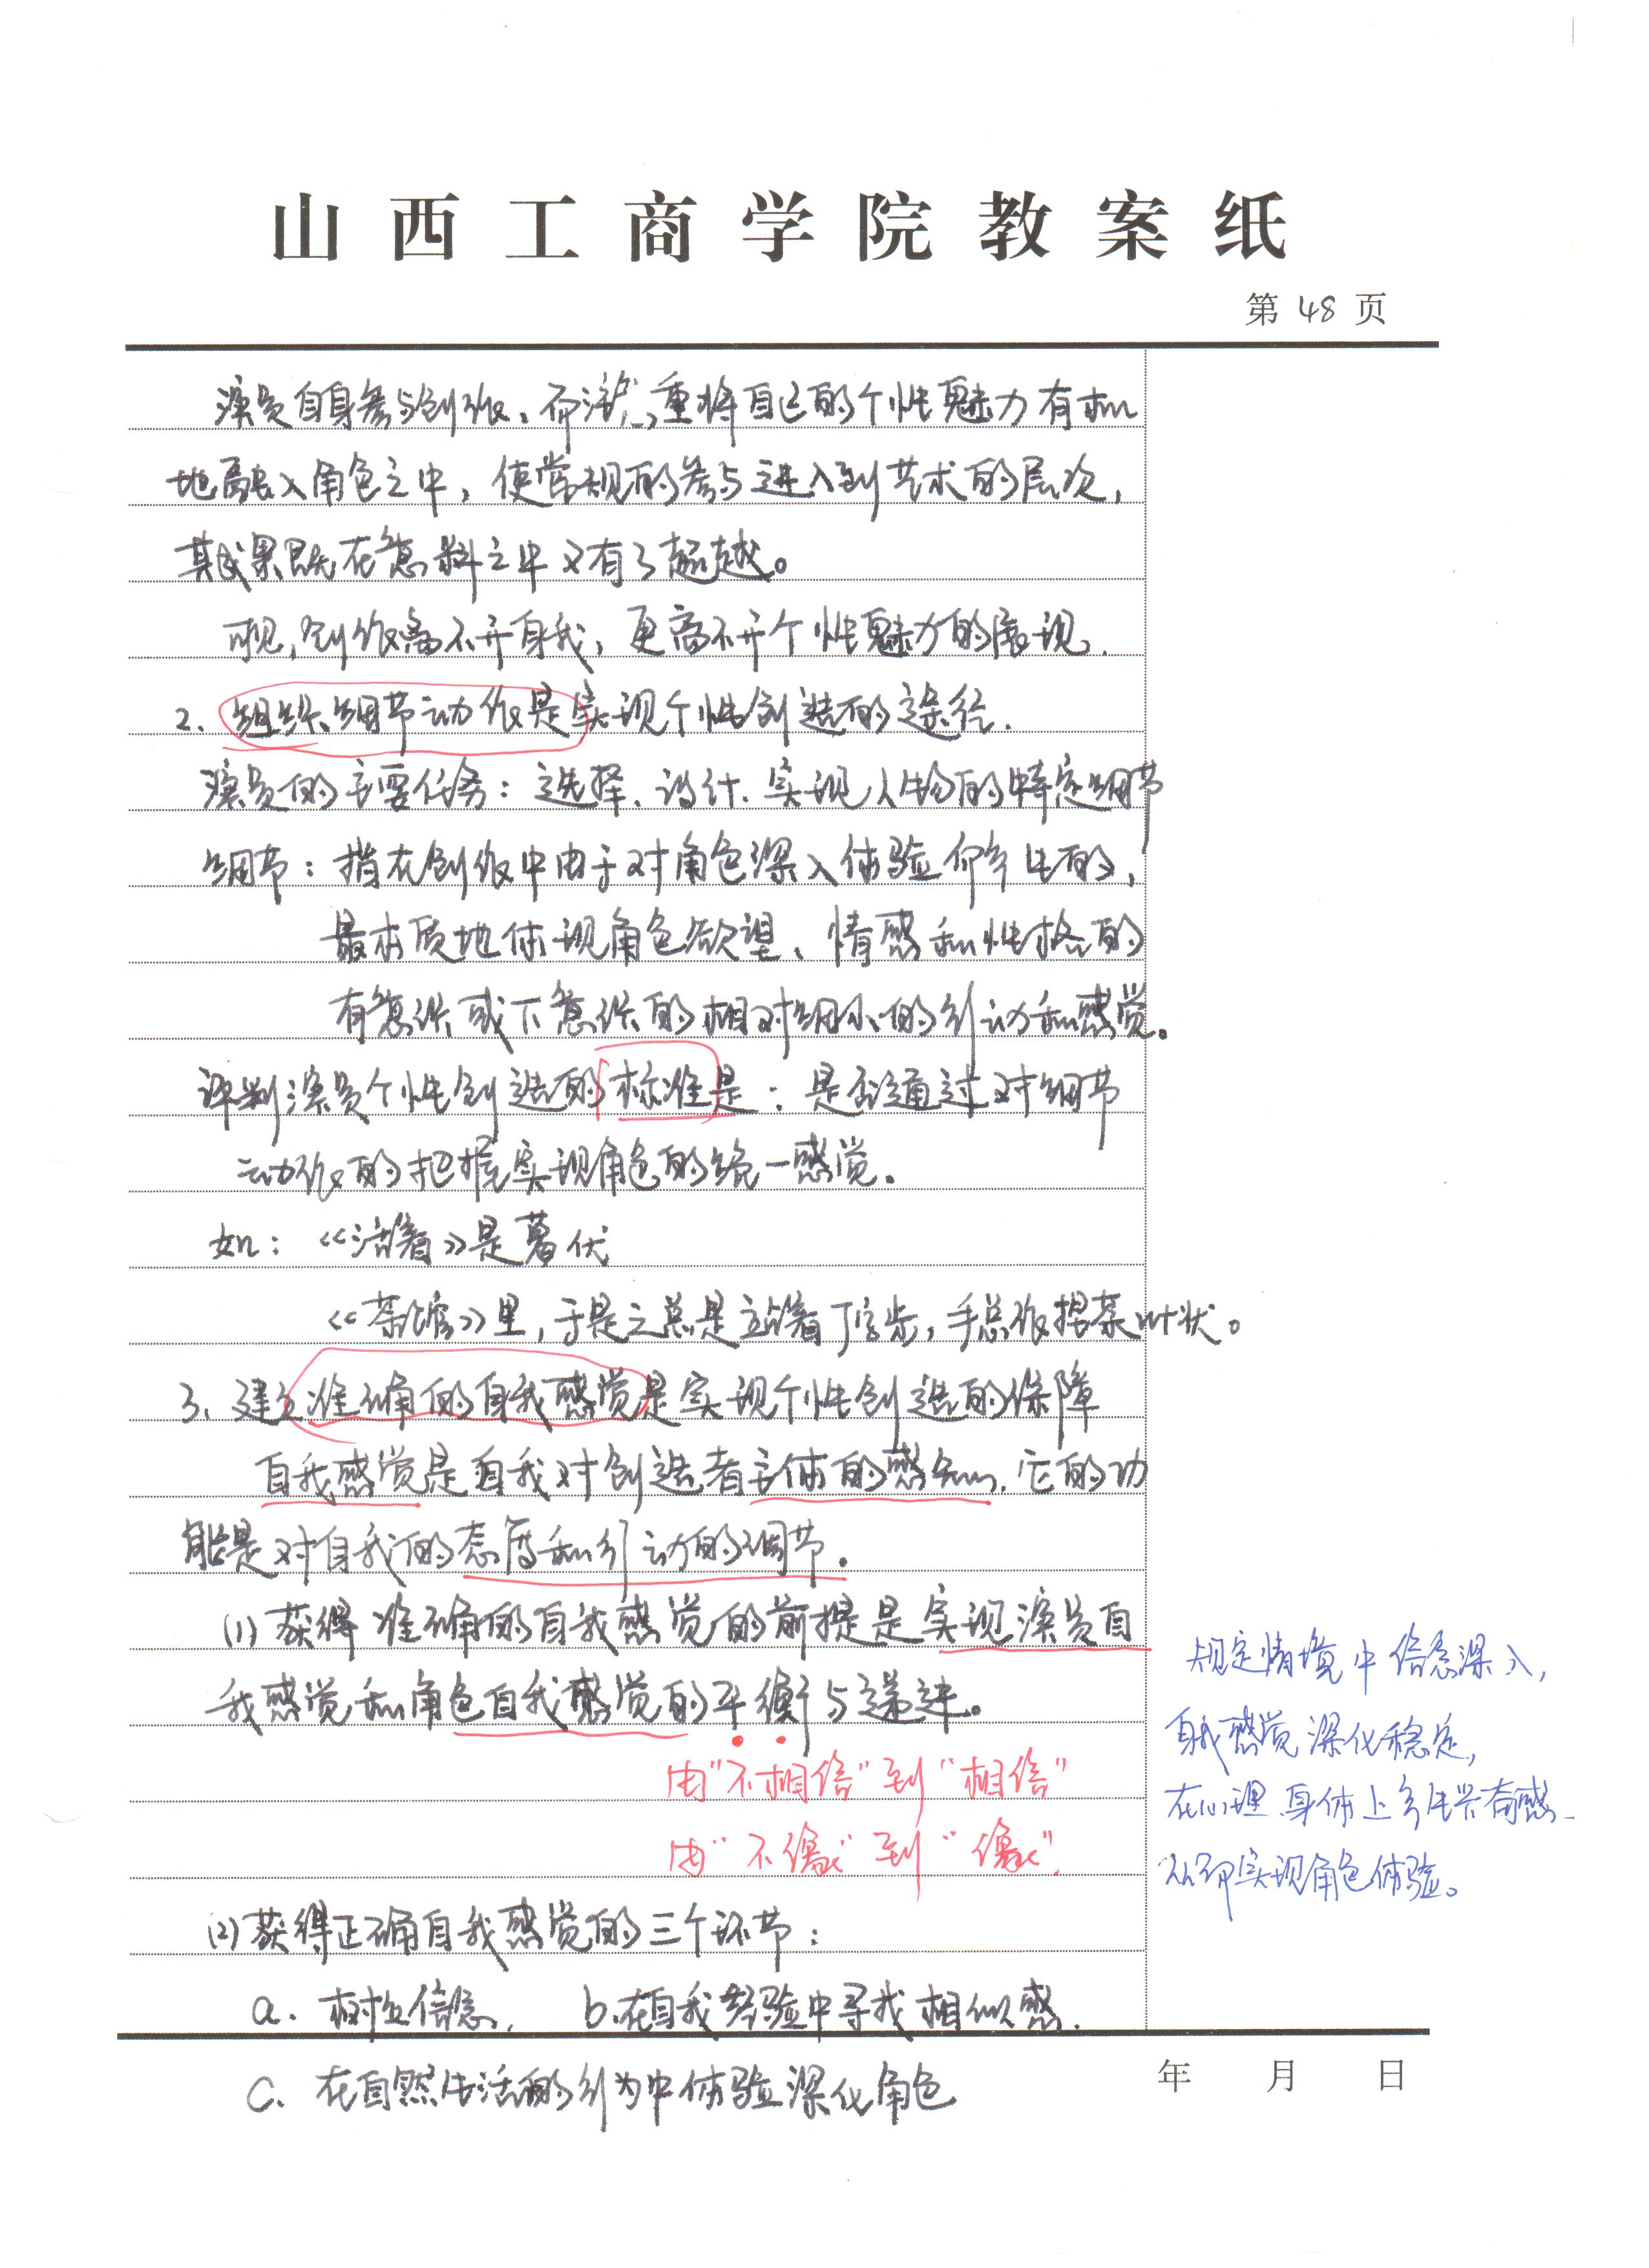 山西工商学院教案纸
第 48 页
演员自身参与创作。而演员,重将自己的个性魅力有机
地融入角色之中，使常规的参与进入到艺术的层次，
其成果既在意料之中又有了超越。
可见，创作离不开自我，更离不开个性魅力的展现.
2、组织细节动作是实现个性创造的途径.
演员的主要任务：选择、设计、实现人物的特定细节
细节：指在创作中由于对角色深入体验而产生的，
最本质地体现角色欲望、情感和性格的
有意识或下意识的相对细小的行动和感觉。
评判演员个性创造的标准是：是否通过对细节
动作的把握实现角色的统一感觉。
如：《活着》是葛优
《茶馆》里，于是之总是立着丁字步，手总作握茶叶状。
3、建立准确的自我感觉是实现个性创造的保障
自我感觉是自我对创造者主体的感知，它的功
能是对自我的态度和行动的调节.
(1)获得准确的自我感觉的前提是实现演员自
我感觉和角色自我感觉的平衡与递进。
由“不相信”到“相信”
由“不像”到“像”.
规定情境中信念深入，
自我感觉深化稳定，
在心理身体上产生兴奋感
从而实现角色体验。
(2)获得正确自我感觉的三个环节：
a. 树立信念. b.在自我经验中寻找相似感.
C. 在自然生活的行为中体验深化角色
年 月 日